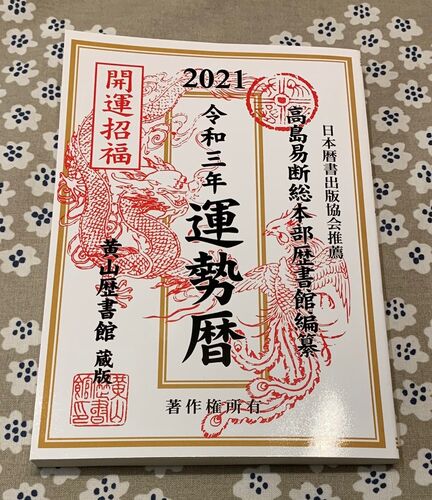 日本暦書出版協会推薦
高島易断総本部歴書館編纂
2021
令和三年
運勢暦
開運招福
黄山歴書館 蔵版
著作権所有